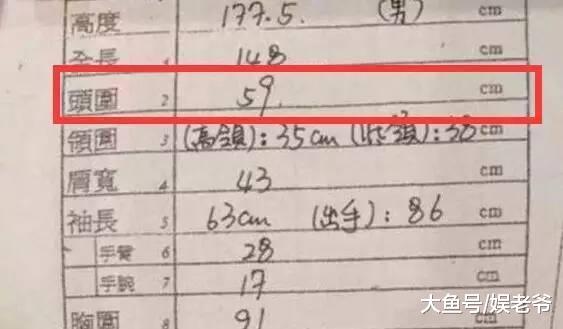 高度 177.5. (男) cm
全長 1 148 cm
頭圍 2 59. cm
領圍 3 (高領): 35cm (低領): 38 cm
肩寬 4 43 cm
袖長 5 63cm (出手): 86 cm
手臂 6 28 cm
手腕 7 17 cm
胸圍 8 91 cm
大鱼号/娱老爷